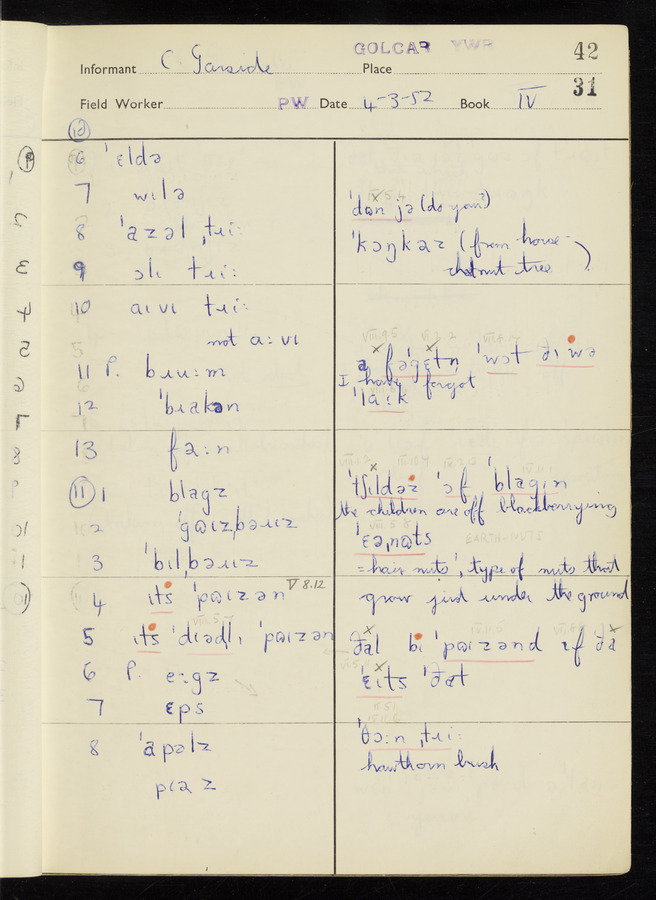 GOLCAR YWR 42
Informant C Garside Place
31
Field Worker PW Date 4-3-52 Book IV
10
6 ˈɛldə
7 wɪlə
ˈdən jə (do you?)
8 ˈazəl ˌtɹiː
ˈkɔŋkəz (from horse-
chestnut tree)
9 ɔlɪ tɹiː
10 aɪvɪ tɹiː
not aːvɪ
11 P. bɹuːm
ə fəˈgɛtn̩ ˈwət ðɪ wə
I have forgot
12 ˈbɹakən
ˈlaːk
13 fəːn
11 1 blagz
ˈtʃɪldəz ˈɔf ˈblagɪn
the children are off blackberrying
2 ˈgʊɪzˌbəɹɪz
ˈɛəˌnəts
EARTH-NUTS
3 ˈbɪlˌbəɹɪz
= hair nuts', type of nuts that
4 ɪts ˈpɒɪzən V 8.12
grow just under the ground
5 ɪts ˈdɪədlɪ ˈpɒɪzən
ðəl bɪ ˈpɒɪzənd ɪf ðə
6 P. eːgz
ˈɛɪts ˈðat
7 ɛps
8 ˈapəlz
ˈθɔːn ˌtɹiː
hawthorn bush
pɪəz